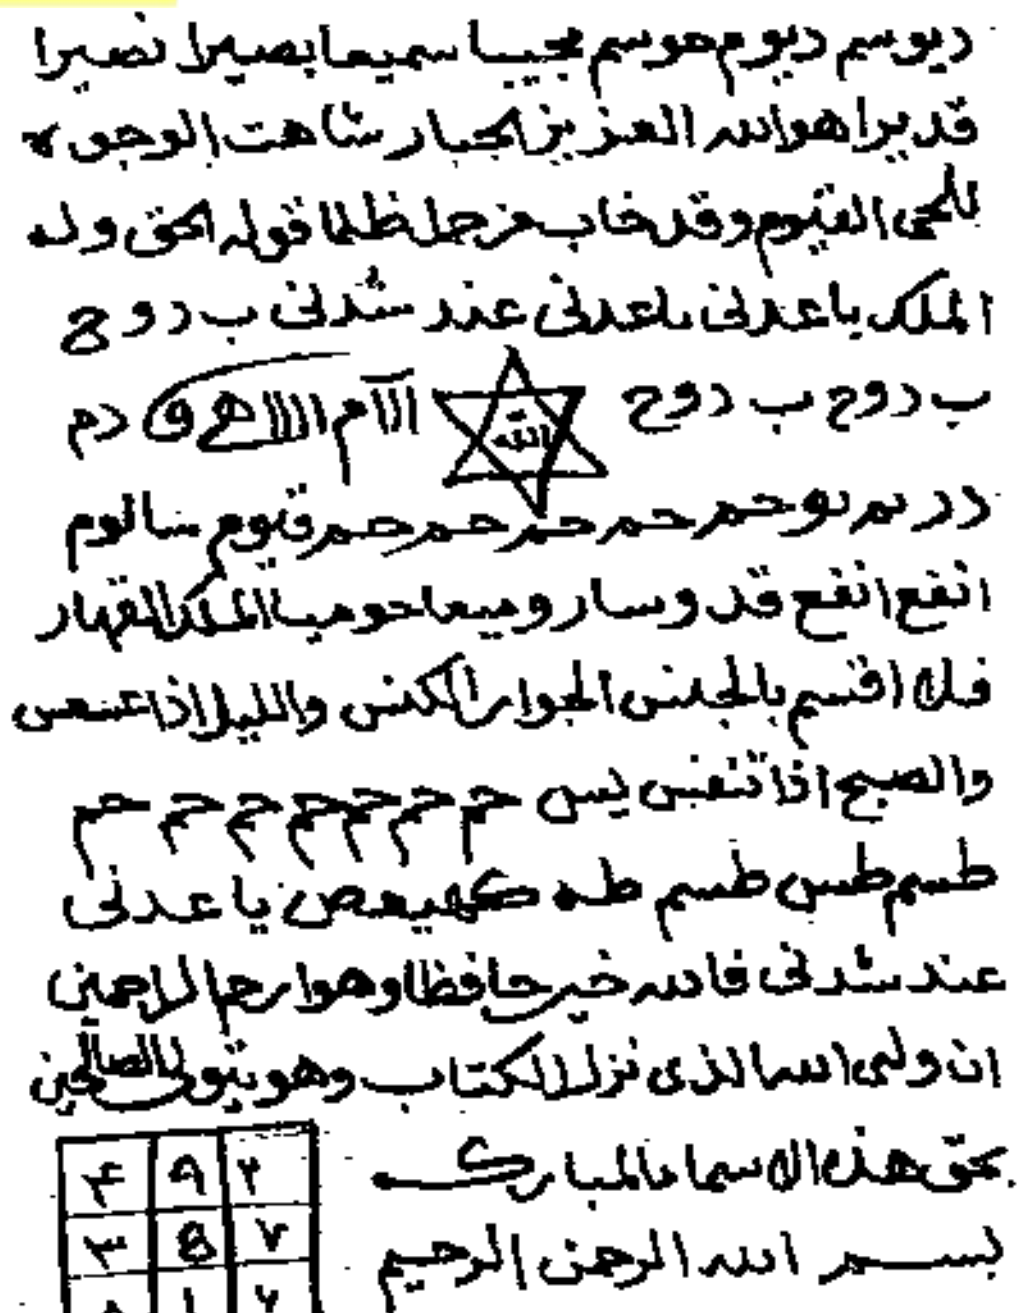 ديوسم ديوم هوسم مجيبا سميعا بصيرا نصيرا
قديرا هو الله العزيز الجبار شاهت الوجوه
للحي القيوم وقد خاب من حمل ظلما قوله الحق وله
الملك ياعدتى ياعدتى عند شدتى ب د و ح
ب د و ح ب د و ح الله ااام ااااا دم
حم حم حم حم حم قيوم سالوم
انفع انفع الملك القهار
فلا اقسم بالخنس الجوار الكنس والليل اذا عسعس
والصبح اذا تنفس يس حم حم حم حم حم حم حم
طسم طس طسم طه كهيعص ياعدتى
عند شدتى فالله خير حافظا وهو ارحم الراحمين
ان ولى الله الذى نزل الكتاب وهو يتولى الصالحين
بحق هذه الاسماء المباركـــه
بســـم الله الرحمن الرحيم
٢ ٩ ٤
٧ ٣